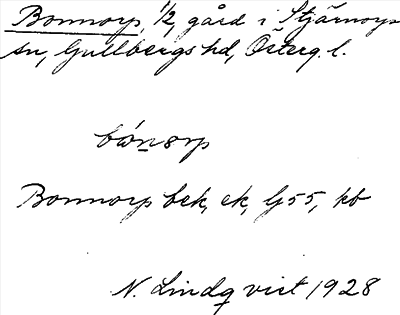 Bonnorp, 1/2, gård i Stjärnorps
sn, Gullbergs hd, Österg. l.
bónorp
Bonnorp bek, ek, G55, kb
N. Lindqvist 1928